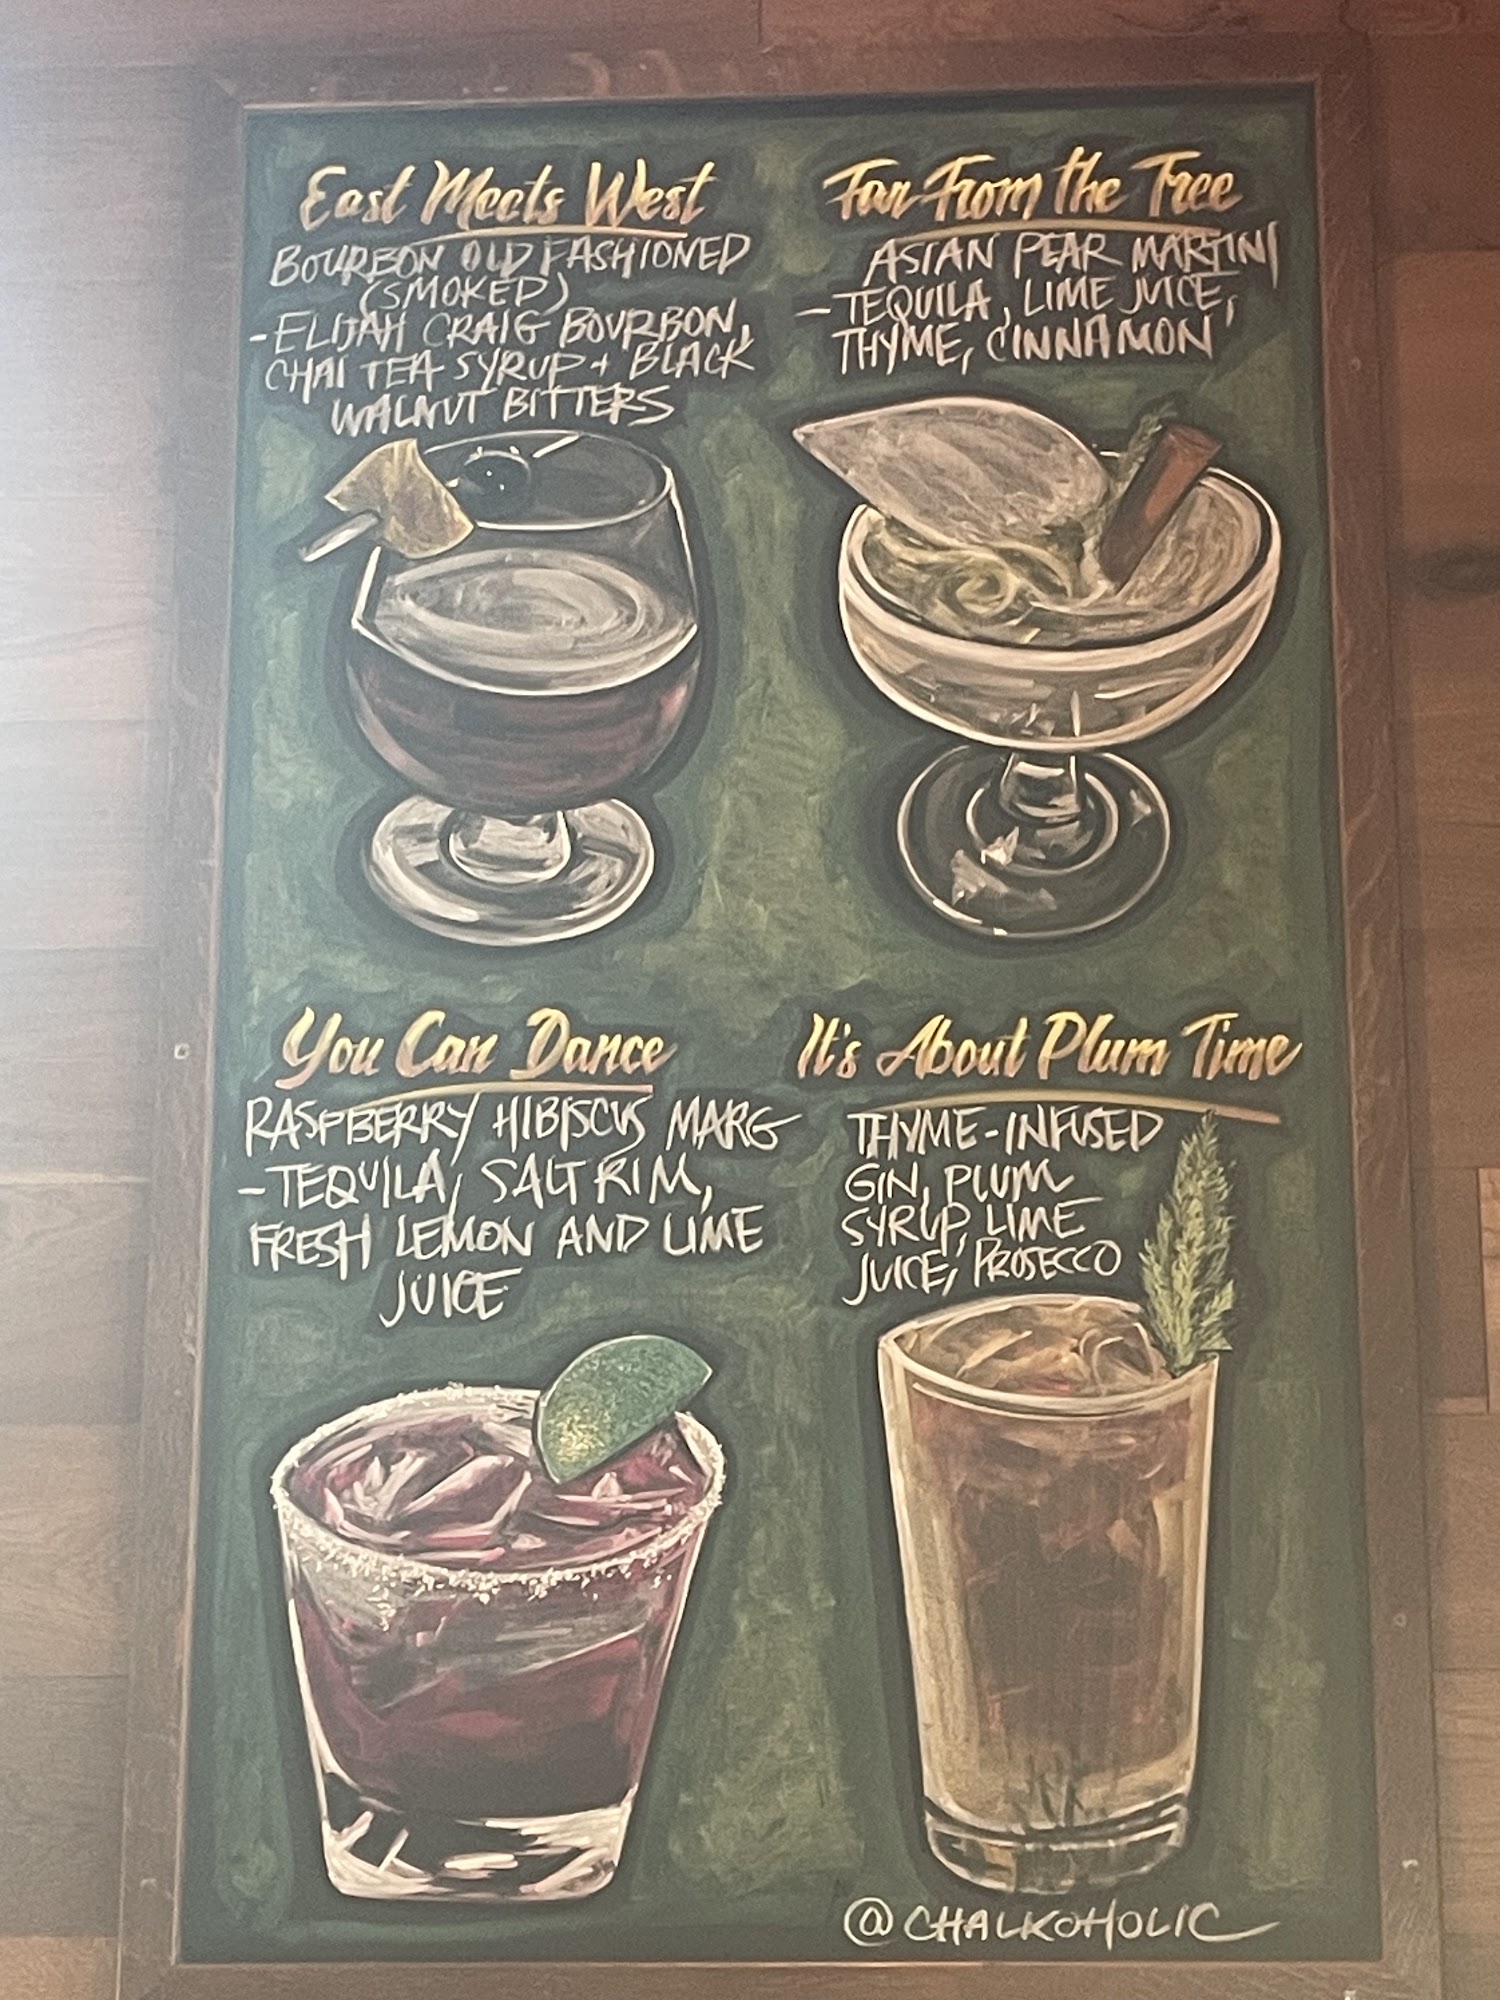 East Meets West
BOURBON OLD FASHIONED
(SMOKED)
-ELIJAH CRAIG BOURBON,
CHAI TEA SYRUP + BLACK
WALNUT BITTERS
Far From the Tree
ASIAN PEAR MARTINI
-TEQUILA, LIME JUICE,
THYME, CINNAMON
You Can Dance
RASPBERRY HIBISCUS MARG
-TEQUILA, SALT RIM,
FRESH LEMON AND LIME
JUICE
It's About Plum Time
THYME-INFUSED
GIN, PLUM
SYRUP, LIME
JUICE, PROSECCO
@CHALKOHOLIC